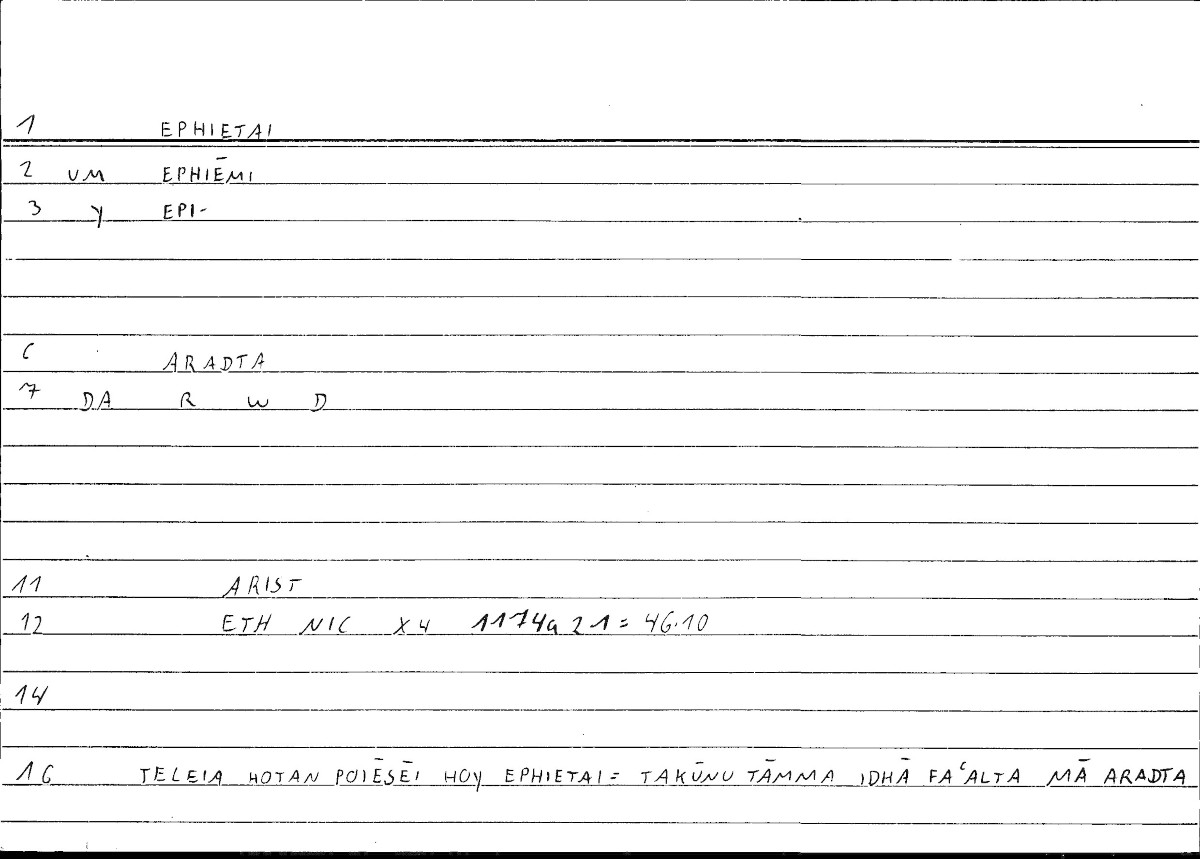 1 EPHIETAI
2 UM EPHIĒMI
3 Y EPI-
6 ARADTA
7 DA R W D
11 ARIST
12 ETH NIC X4 1174a21 = 46.10
14
16 TELEIA HOTAN POIĒSĒI HOY EPHIETAI = TAKŪNU TĀMMA IDHĀ FAʿALTA MĀ ARADTA